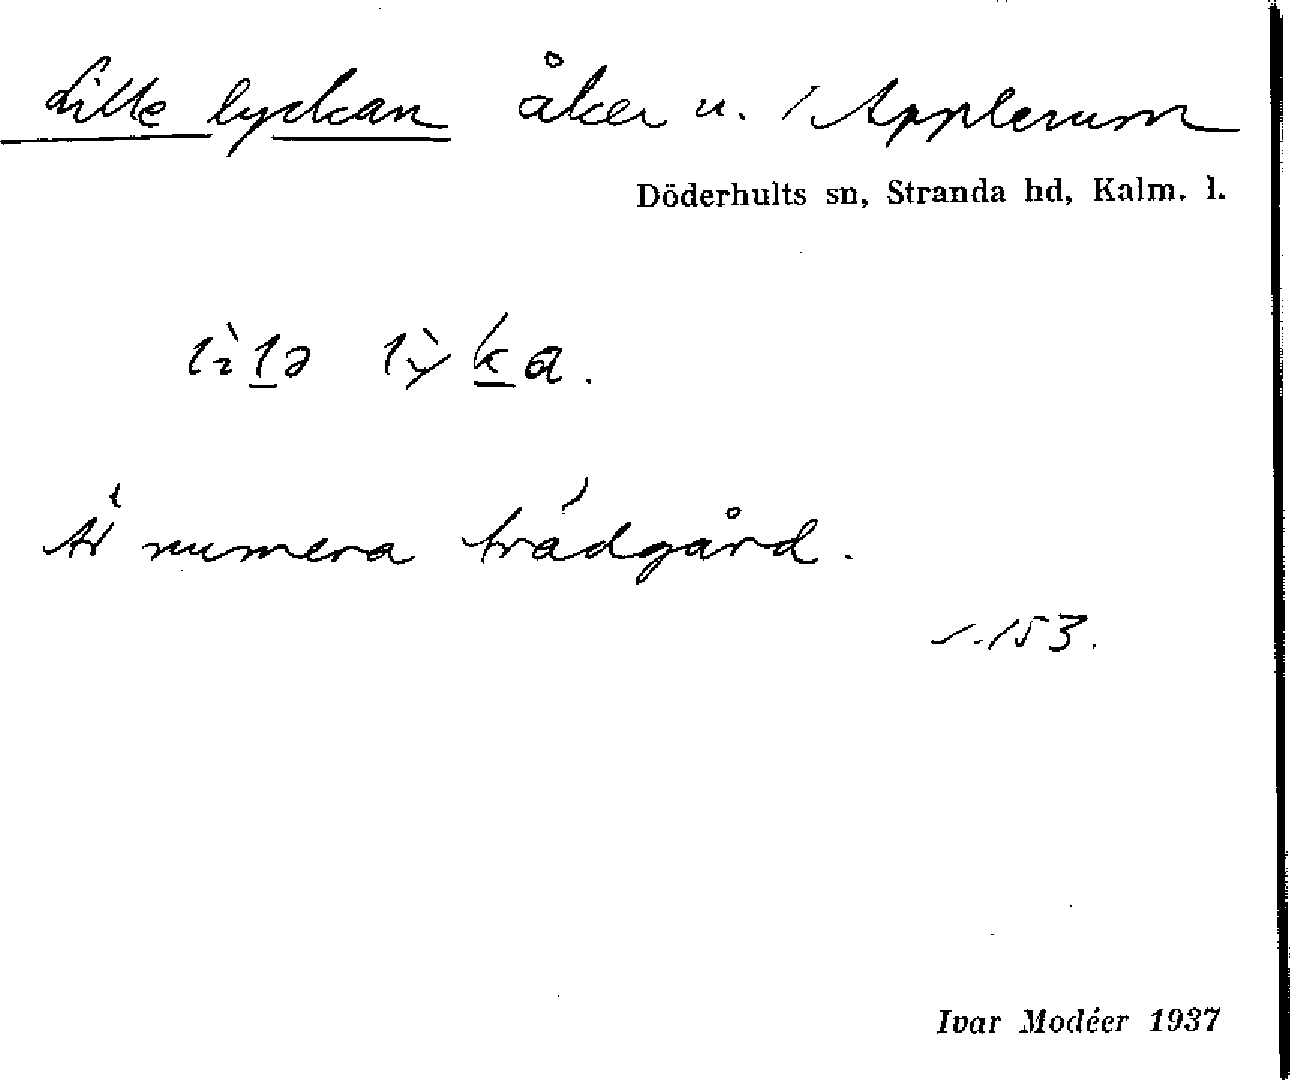 Lille lyckan åker u. 1 Applerum
Döderhults sn, Stranda hd, Kalm. l.
lìlə lỳka.
Är numera trädgård.
s. 153.
Ivar Modéer 1937